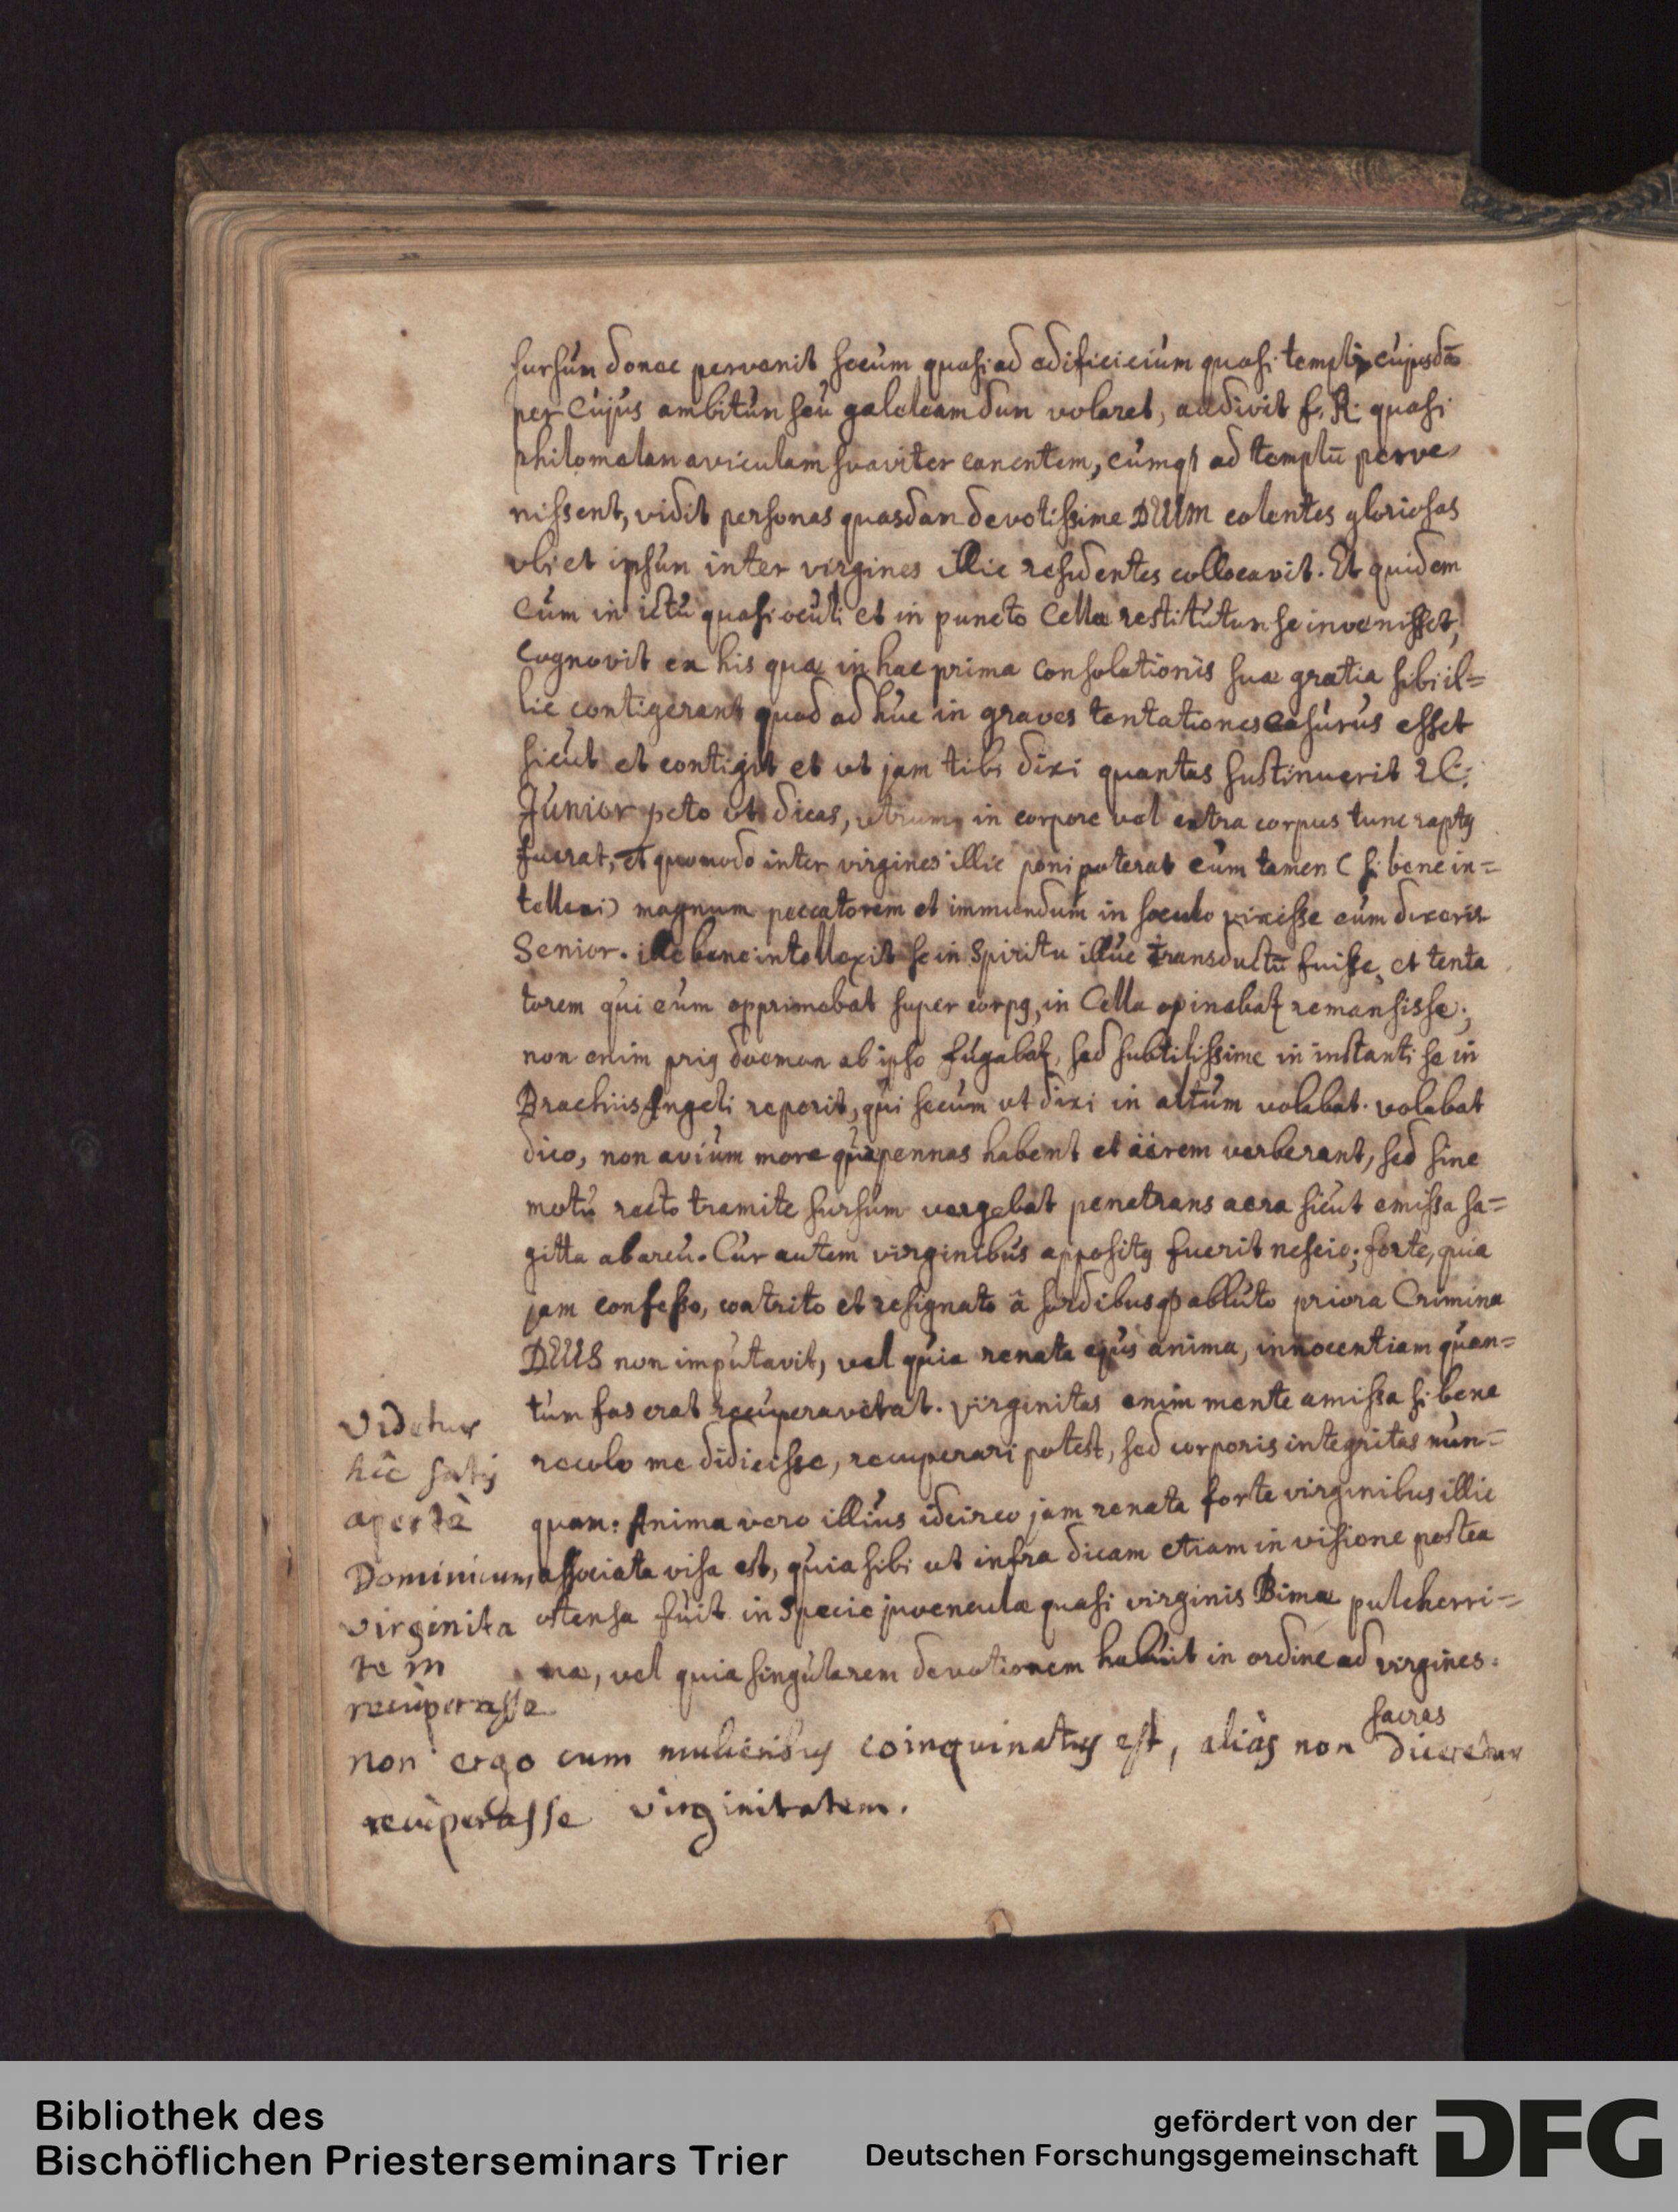 sursùn donec pervenit secum quasi ad ædificicium quasi templi cujusdā
per cujus ambitùn seù galeleam dun volaret, audivit f. R. quasi
philomelan aviculam suaviter canentem, cùmq3 ad templū perve
nissent, vidit personas quasdan devotissime DEUM colentes gloriosas
vbi et ipsùn inter virgines illic residentes collocavit. Et quidem
Cùm in ictù quasi oculi et in puncto Cellæ restitùtun se invenisset,
Cognovit ex his quæ in hac prima consolationis suæ gratia sibi il=
lic contigerant quod ad hùc in graves tentationes casùrùs esset
sicùt et contigit et ut jam tibi dixi quantas sustinuerit
Junior peto ùt dicas, utrum in corpore vel extra corpus tunc rapty
fuerat, et quomodo inter virgines illic poni poterat cùm tamen (si bene in=
tellexi) magnum peccatorem et immundùm in sæculo vixisse eùm dixeris
Senior. ille bene intellexit se in spiritu illùc transductū fuisse, et tenta
torem qui eùm opprimebat super corpy, in Cella opinabat remansisse;
non enim priy dæmon ab ipso fùgabat, sed subtilissime in instanti se in
Brachiis Angeli reperit, qui secùm ut dixi in altùm volabat. volabat
dico, non aviùm more quæ pennas habent et äerem verberant, sed sine
motù recto tramite sursùm vergebat penetrans aera sicùt emissa sa=
gitta ab arcù. Cùr autem virginibùs apposity fuerit nescio; forte, quia
jam confesso, contrito et resignato â sordibusq3 ablùto priora Crimina
DEUS non impùtavit, vel qùia renata ejùs anima, innocentiam qùan=
tùm fas erat recùperaverat. virginitas enim mente amissa si bene
recolo me didicisse, recuperari potest, sed corporis integritas nùn=
quam. Anima vero illiùs idcirco jam renata forte virginibus illic
associata visa est, qùia sibi ut infra dicam etiam in visione postea
ostensa fùit in specie juvenculæ quasi virginis Bimæ pulcherri=
mæ, vel quia singùlarem devotionem habùit in ordine ad virgines.
Videtur
hîc satis
apertè
Dominicum
virginita
tem
recùperasse
sacras
non ergo cum mulieriby coinquinaty est, aliàs non diceretur
recùperasse virginitatem.
Bibliothek des
Bischöflichen Priesterseminars Trier
gefördert von der
Deutschen Forschungsgemeinschaft
DFG